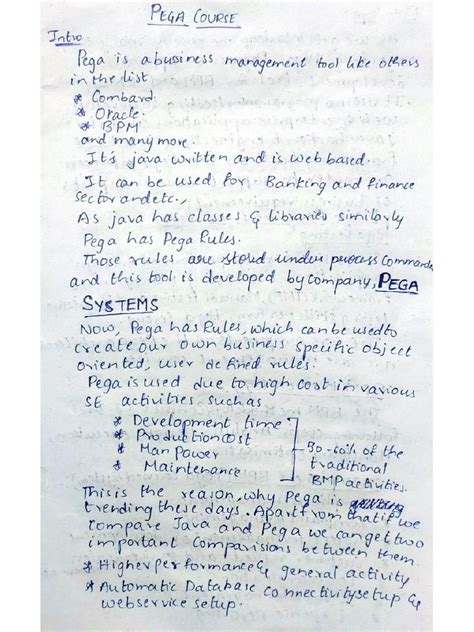 PEGA COURSE
Intro
Pega is a bussiness management tool like others
in the list
* Combard.
* Oracle.
* BPM
and many more.
It's java written and is web based.
It can be used for Banking and finance
sector and etc.,
As java has classes & libraries similarly
Pega has Pega Rules.
Those rules are stored under process Commander
and this tool is developed by company, PEGA
SYSTEMS
Now, Pega has Rules, which can be used to
create our own business specific object
oriented, user defined rules.
Pega is used due to high cost in various
SE activities, such as
* Development time
* Production cost
* Man Power
* Maintenance
50-60% of the
traditional
BMP activities.
This is the reason, why Pega is
trending these days. Apart from that if we
compare Java and Pega we can get two
important Comparisions between them.
* Higher performance & general activity
* Automatic Database connectivity setup &
webservice setup.